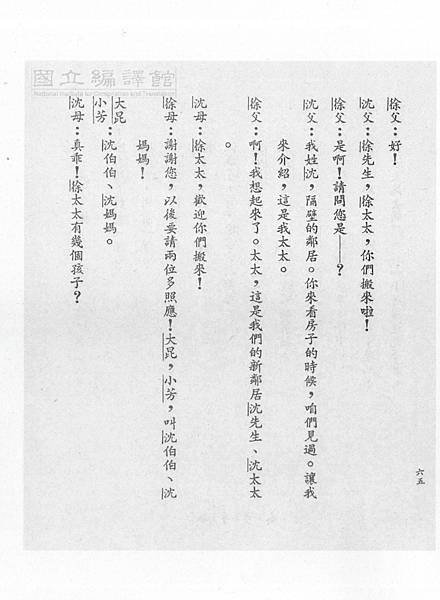 徐父：好！
沈父：徐先生，徐太太，你們搬來啦！
徐父：是啊！請問您是——？
沈父：我姓沈，隔壁的鄰居。你來看房子的時候，咱們見過。讓我
來介紹，這是我太太。
徐父：啊！我想起來了。太太，這是我們的新鄰居沈先生、沈太太
。
沈母：徐太太，歡迎你們搬來！
徐母：謝謝您，以後要請兩位多照應！大昆，小芳，叫沈伯伯、沈
媽媽！
大昆
小芳：沈伯伯、沈媽媽。
沈母：真乖！徐太太有幾個孩子？
六五
國立編譯館
National Institute for Compilation and Translation